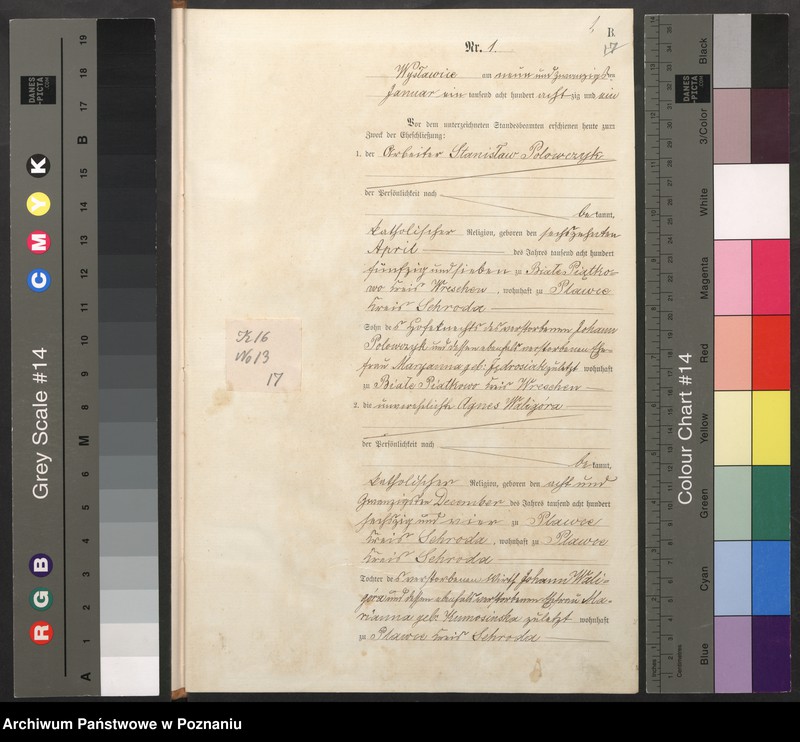 1
B
17
Nr. 1.
Wysławice am neun und zwanzigsten
Januar ein tausend acht hundert achtzig und ein
Vor dem unterzeichneten Standesbeamten erschienen heute zum
Zweck der Eheschließung:
1. der Arbeiter Stanisław Polowczyk
der Persönlichkeit nach
be kannt,
katholischer Religion, geboren den sechszehnten
April des Jahres tausend acht hundert
fünfzig und sieben zu Białe Piątko-
wo Kreis Wreschen, wohnhaft zu Pławce
Kreis Schroda
Sohn des Hofeknechts des verstorbenen Johann
Polowczyk und dessen ebenfalls verstorbenen Ehe-
frau Maryanna geb: Jędrosiak zuletzt wohnhaft
zu Białe Piątkowo Kreis Wreschen
2. die unverehelichte Agnes Waligóra
der Persönlichkeit nach
be kannt,
katholischer Religion, geboren den acht und
zwanzigsten December des Jahres tausend acht hundert
sechszig und vier zu Pławce
Kreis Schroda, wohnhaft zu Pławce
Kreis Schroda
Tochter des verstorbenen Wirth Johann Wali-
góra und dessen ebenfalls verstorbenen Ehefrau Ma-
rianna geb. zuletzt wohnhaft
zu Pławce Kreis Schroda
K 16
No 13
17
Grey Scale #14
DANES
-PICTA
.COM
K
Y
M
C
B
G
R
19
18
17
B
15
14
13
12
11
10
9
8
M
6
5
4
3
2
1
A
Colour Chart #14
DANES
-PICTA
.COM
Black
3/Color
White
Magenta
Red
Yellow
Green
Cyan
Blue
Inches
Centimetres
Archiwum Państwowe w Poznaniu